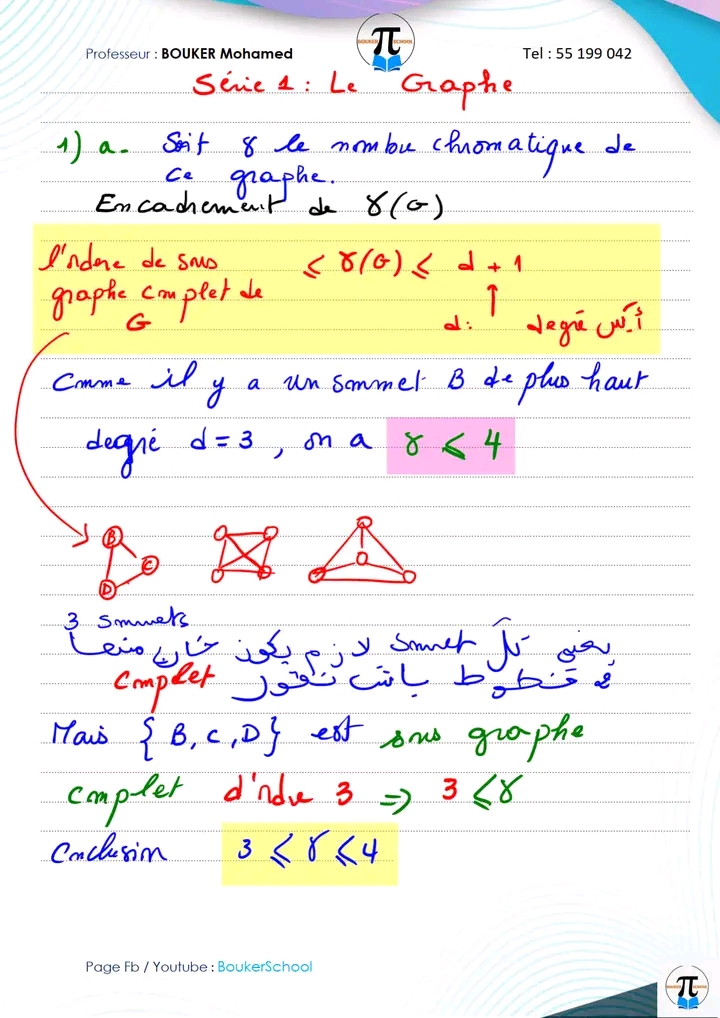 Professeur : BOUKER Mohamed
BOUKER π SCHOOL
Tel : 55 199 042
Série 1 : Le Graphe
1) a. Soit γ le nombre chromatique de
ce graphe.
Encadrement de γ(G)
l'ordre de sous ≤ γ(G) ≤ d + 1
graphe complet de
G
d : degré أقصى
Comme il y a un sommet B de plus haut
degré d = 3 , on a γ ≤ 4
B
C
D
3 sommets
يعني كل sommet لازم يكون خارج منها
خطوط باش نقول complet
Mais { B, C, D } est sous graphe
complet d'ordre 3 => 3 ≤ γ
Conclusion 3 ≤ γ ≤ 4
Page Fb / Youtube : BoukerSchool
BOUKER π SCHOOL